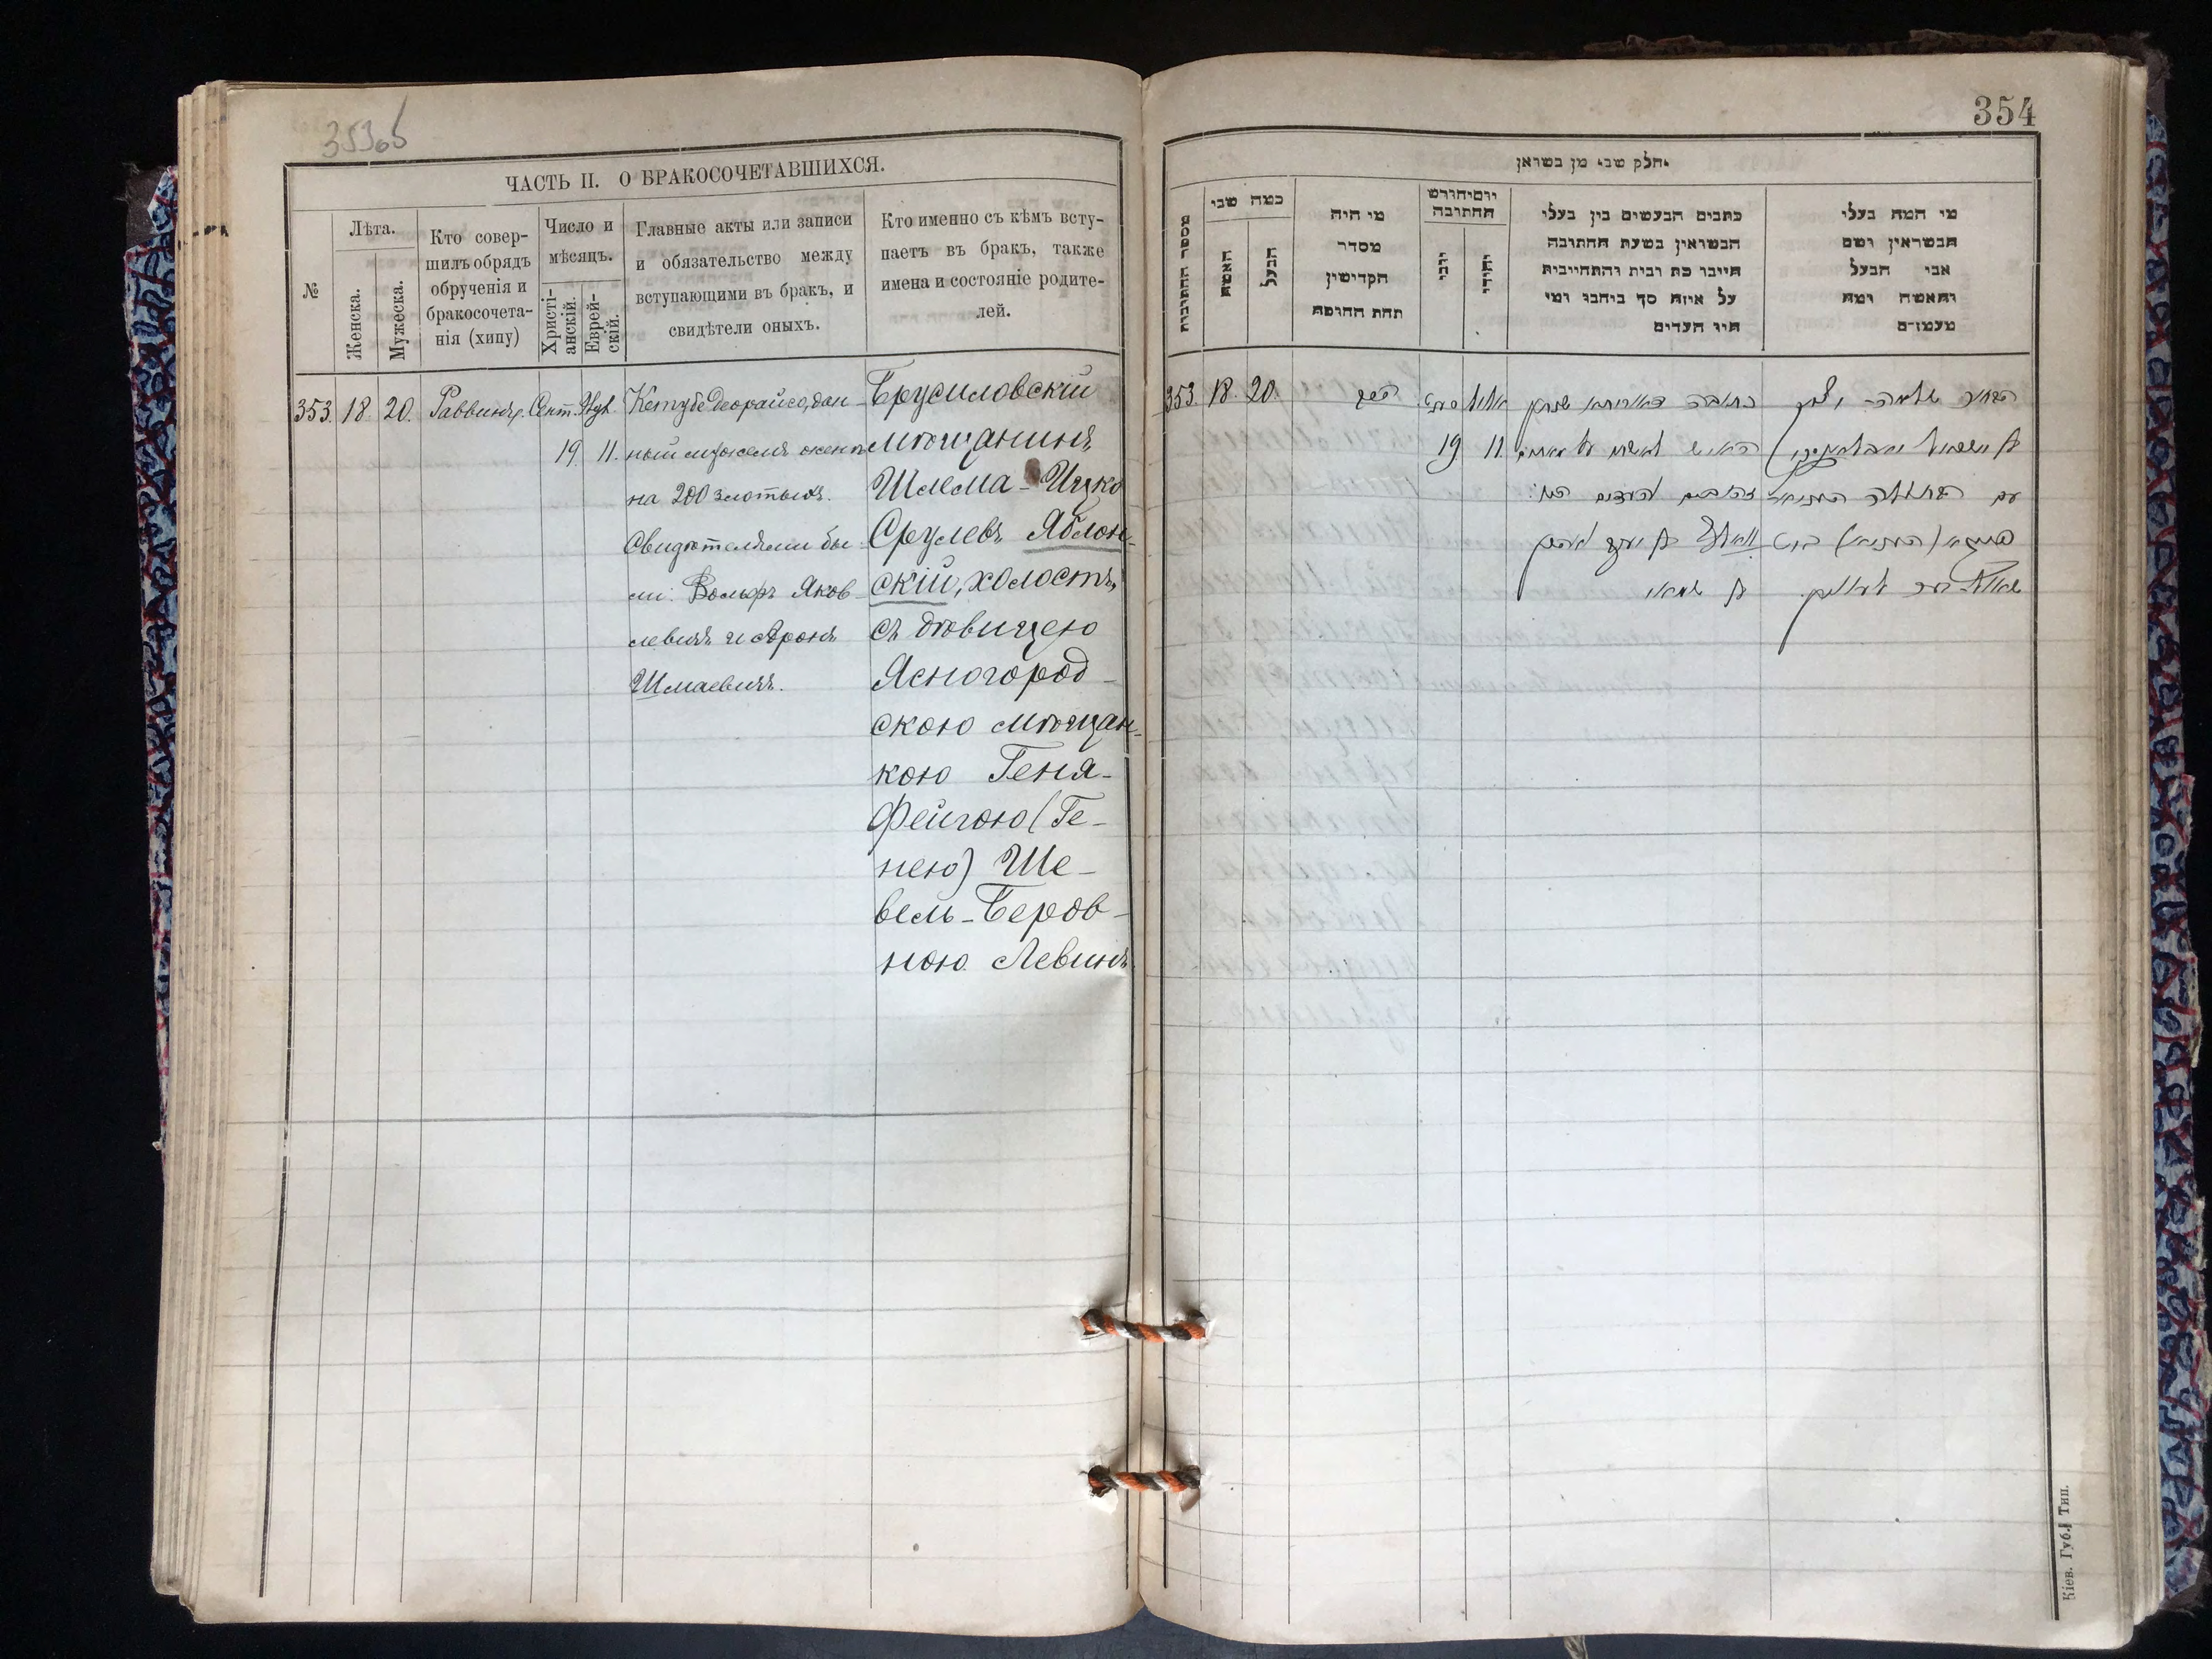 353об
ЧАСТЬ II. О БРАКОСОЧЕТАВШИХСЯ.
№
Лѣта.
Женска.
Мужеска.
Кто совер-
шилъ обрядъ
обрученія и
бракосочета-
нія (хипу)
Число и
мѣсяцъ.
Христі-
анскій.
Еврей-
скій.
Главные акты или записи
и обязательство между
вступающими въ бракъ, и
свидѣтели оныхъ.
Кто именно съ кѣмъ всту-
паетъ въ бракъ, также
имена и состояніе родите-
лей.
353. 18. 20. Раввинъ. Сент.
19. 11.
Кетубе Деорайсо, дан-
ный мужемъ женѣ
на 200 злотыхъ.
Свидѣтелями бы-
ли: Вольфъ Яков-
левичъ и Аронъ
Шмаевичъ.
Брусиловскій
мѣщанинъ
Шлема-Ицко
Срулевъ Яблон-
скій, холостъ,
съ дѣвицею
Ясногород-
скою мѣщан-
кою Геня-
Фейгою (Ге-
нею) Ше-
вель-Беров-
ною Левинъ
354
חלק שני מן נשואן
מספר החתונות
כמה שני
האשה
הבעל
מי היה
מסדר
הקדישין
תחת החופה
יום וחודש
החתונה
יוני
יהודי
כתבים הנעשים בין בעלי
הנשואין בשעת החתונה
היינו כת ובית והתחייבות
על איזה סך ביחבו ומי
היו העדים
מי המה בעלי
הנשואין ושם
אבי הבעל
והאשה ומה
מעמדם
353. 18. 20.
19 11.
כתובה דאורייתא שנתן
האיש לאשתו
זהובים והעדים היו:
וואלף בן יעקב ואהרן
בן שמאי
הבחור שלמה-יצחק
בן ישראל יאבלאנסקי
עם הבתולה
Кіев. Губ. Тип.